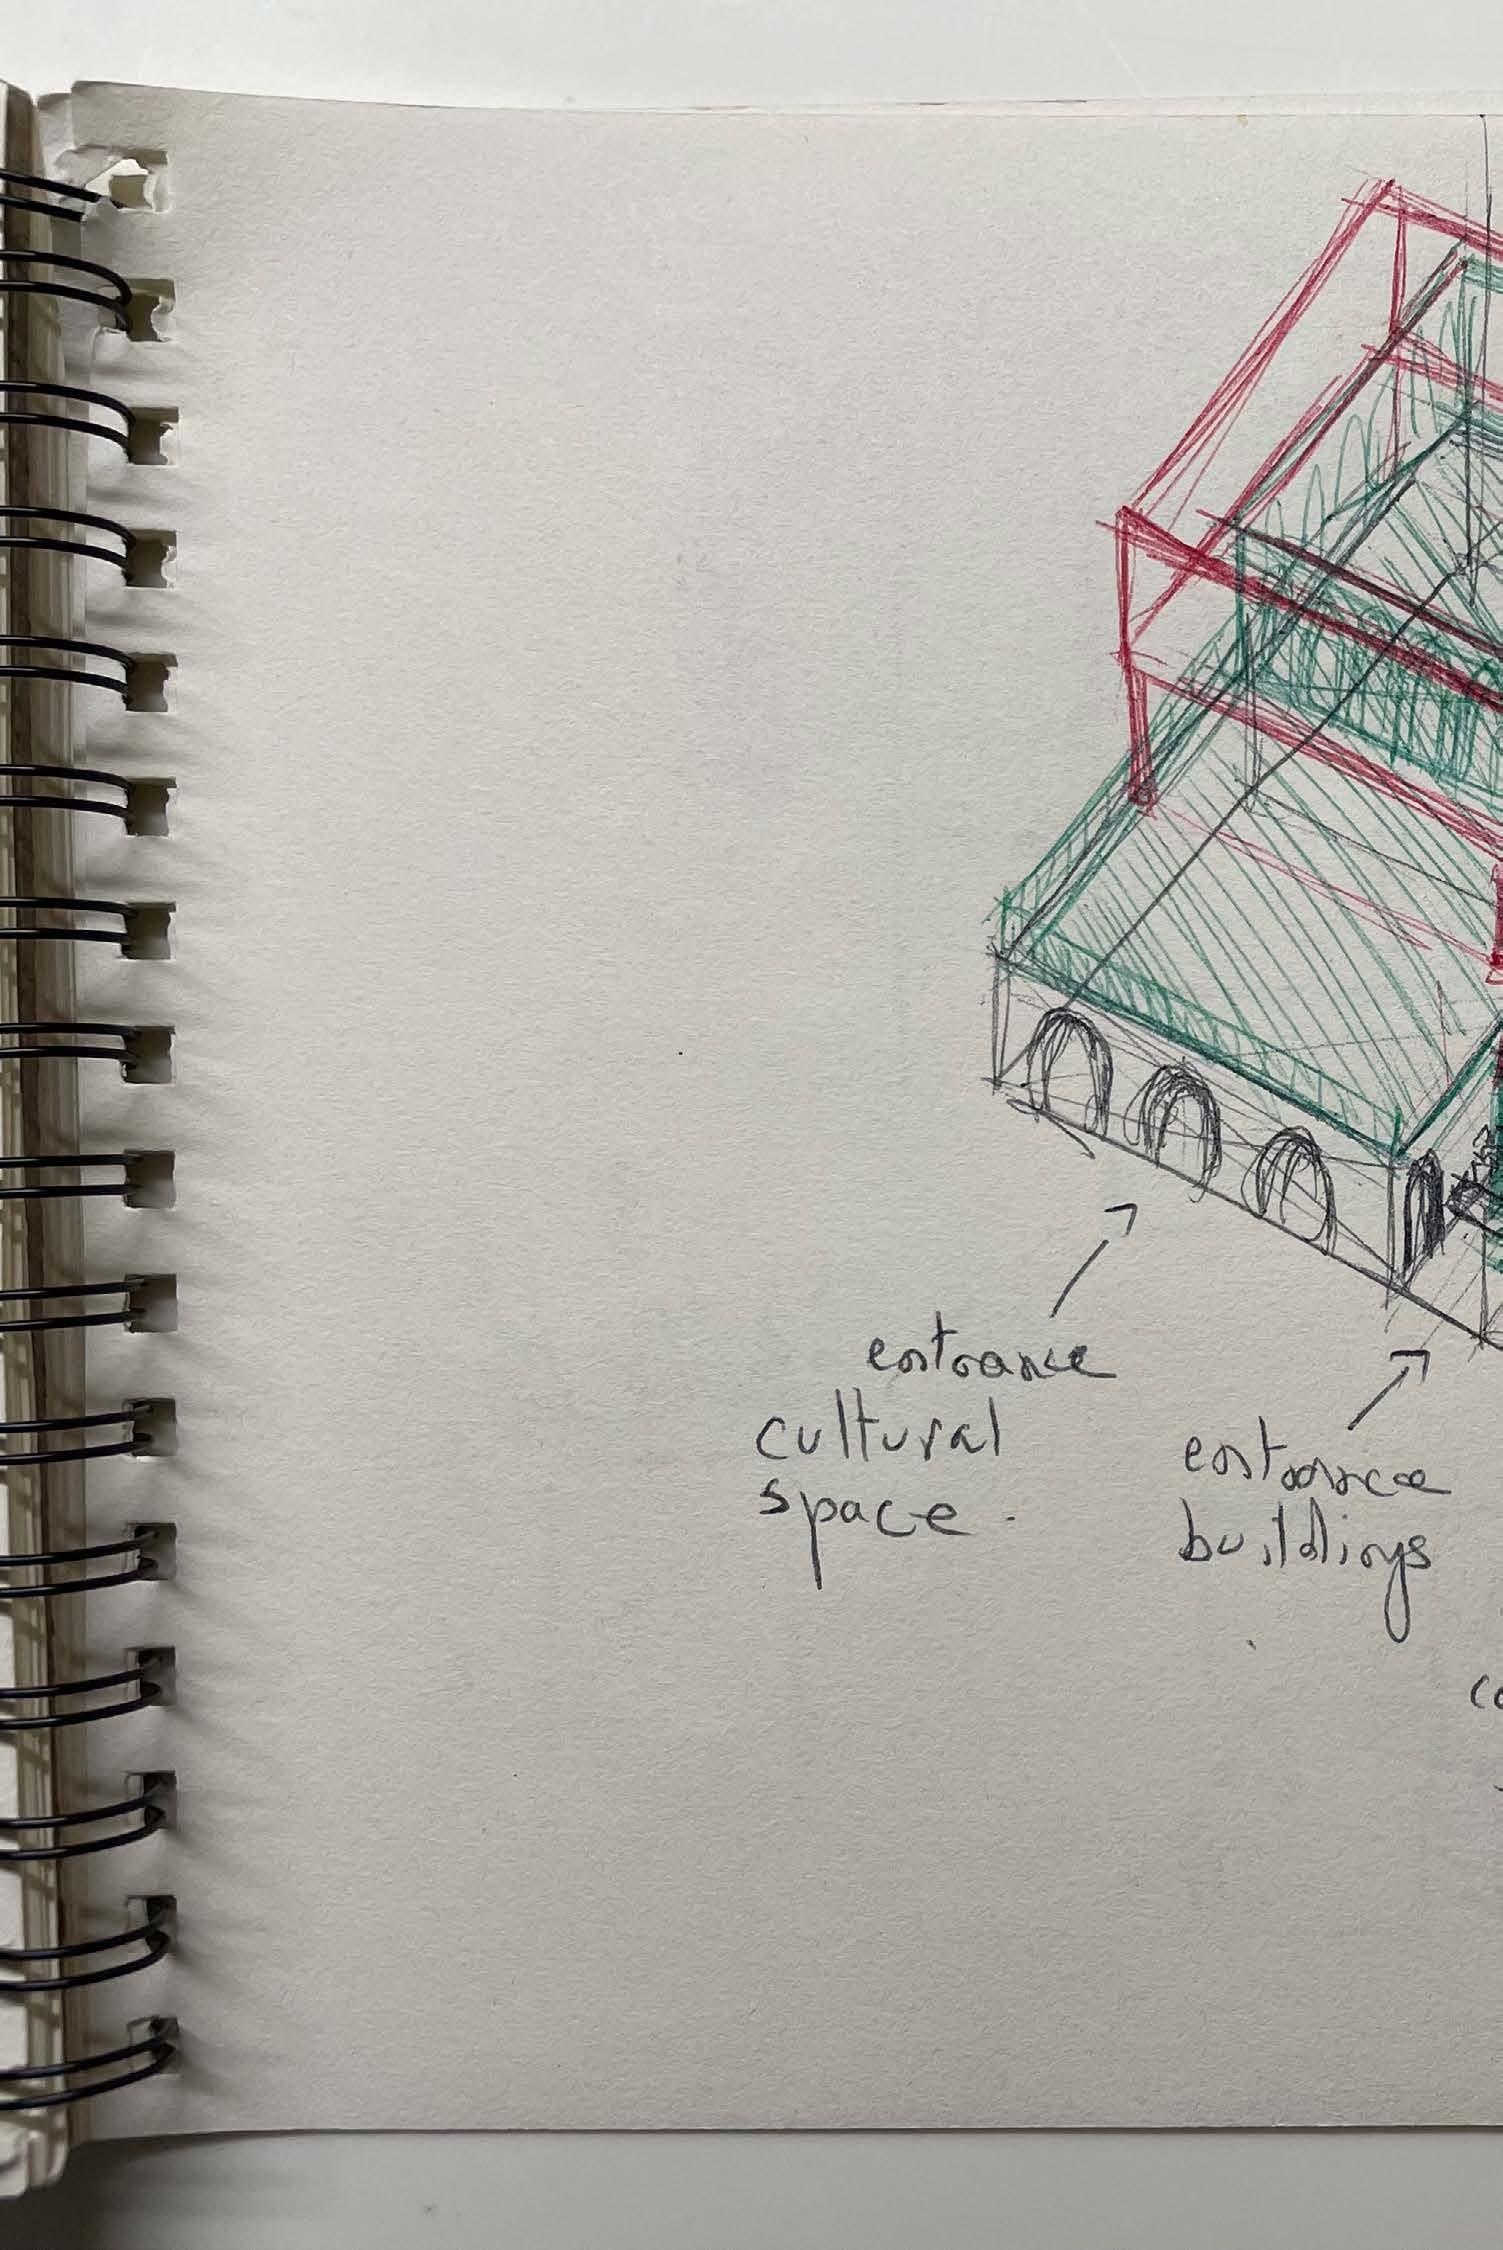 entrance
cultural
space.
entrance
buildings